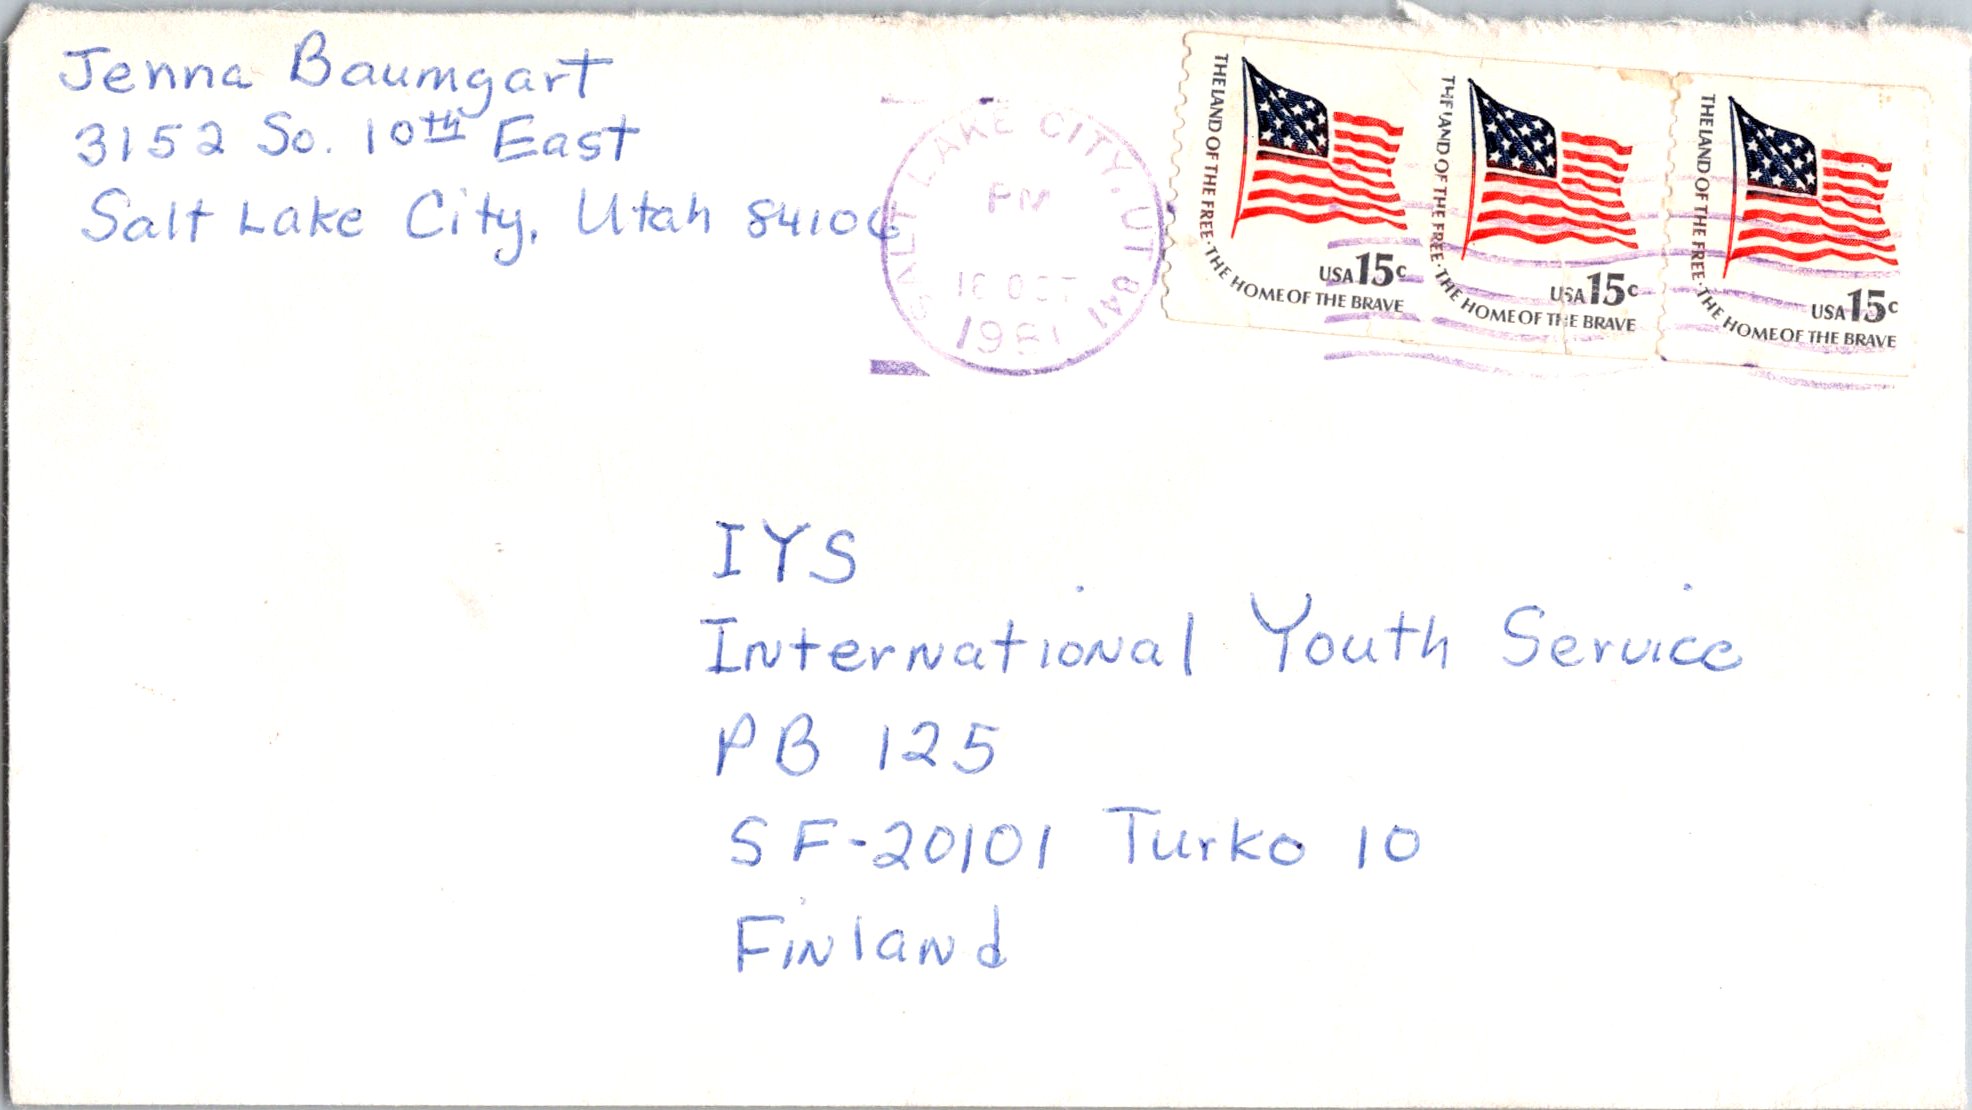 Jenna Baumgart
3152 So. 10th East
Salt Lake City, Utah 84106
SALT LAKE CITY, UT
PM
OCT
1981
THE LAND OF THE FREE · THE HOME OF THE BRAVE
USA 15c
THE LAND OF THE FREE · THE HOME OF THE BRAVE
USA 15c
THE LAND OF THE FREE · THE HOME OF THE BRAVE
USA 15c
IYS
International Youth Service
PB 125
SF-20101 Turko 10
Finland